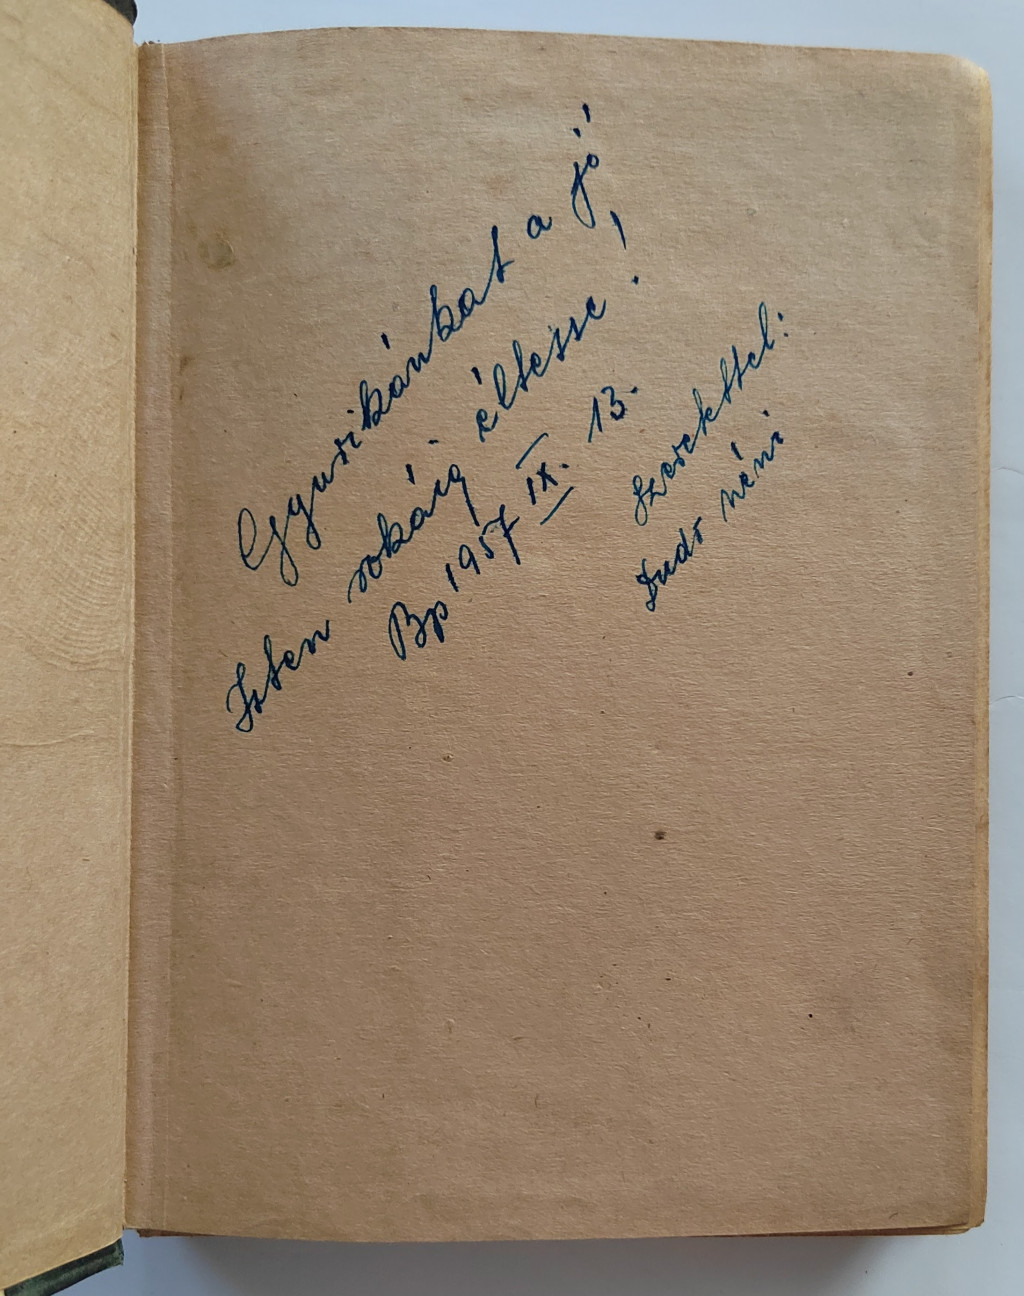 Gyurikánkat a jó
Isten sokáig éltesse!
Bp 1957 IX. 13.
Szerekttel:
Dudi néni